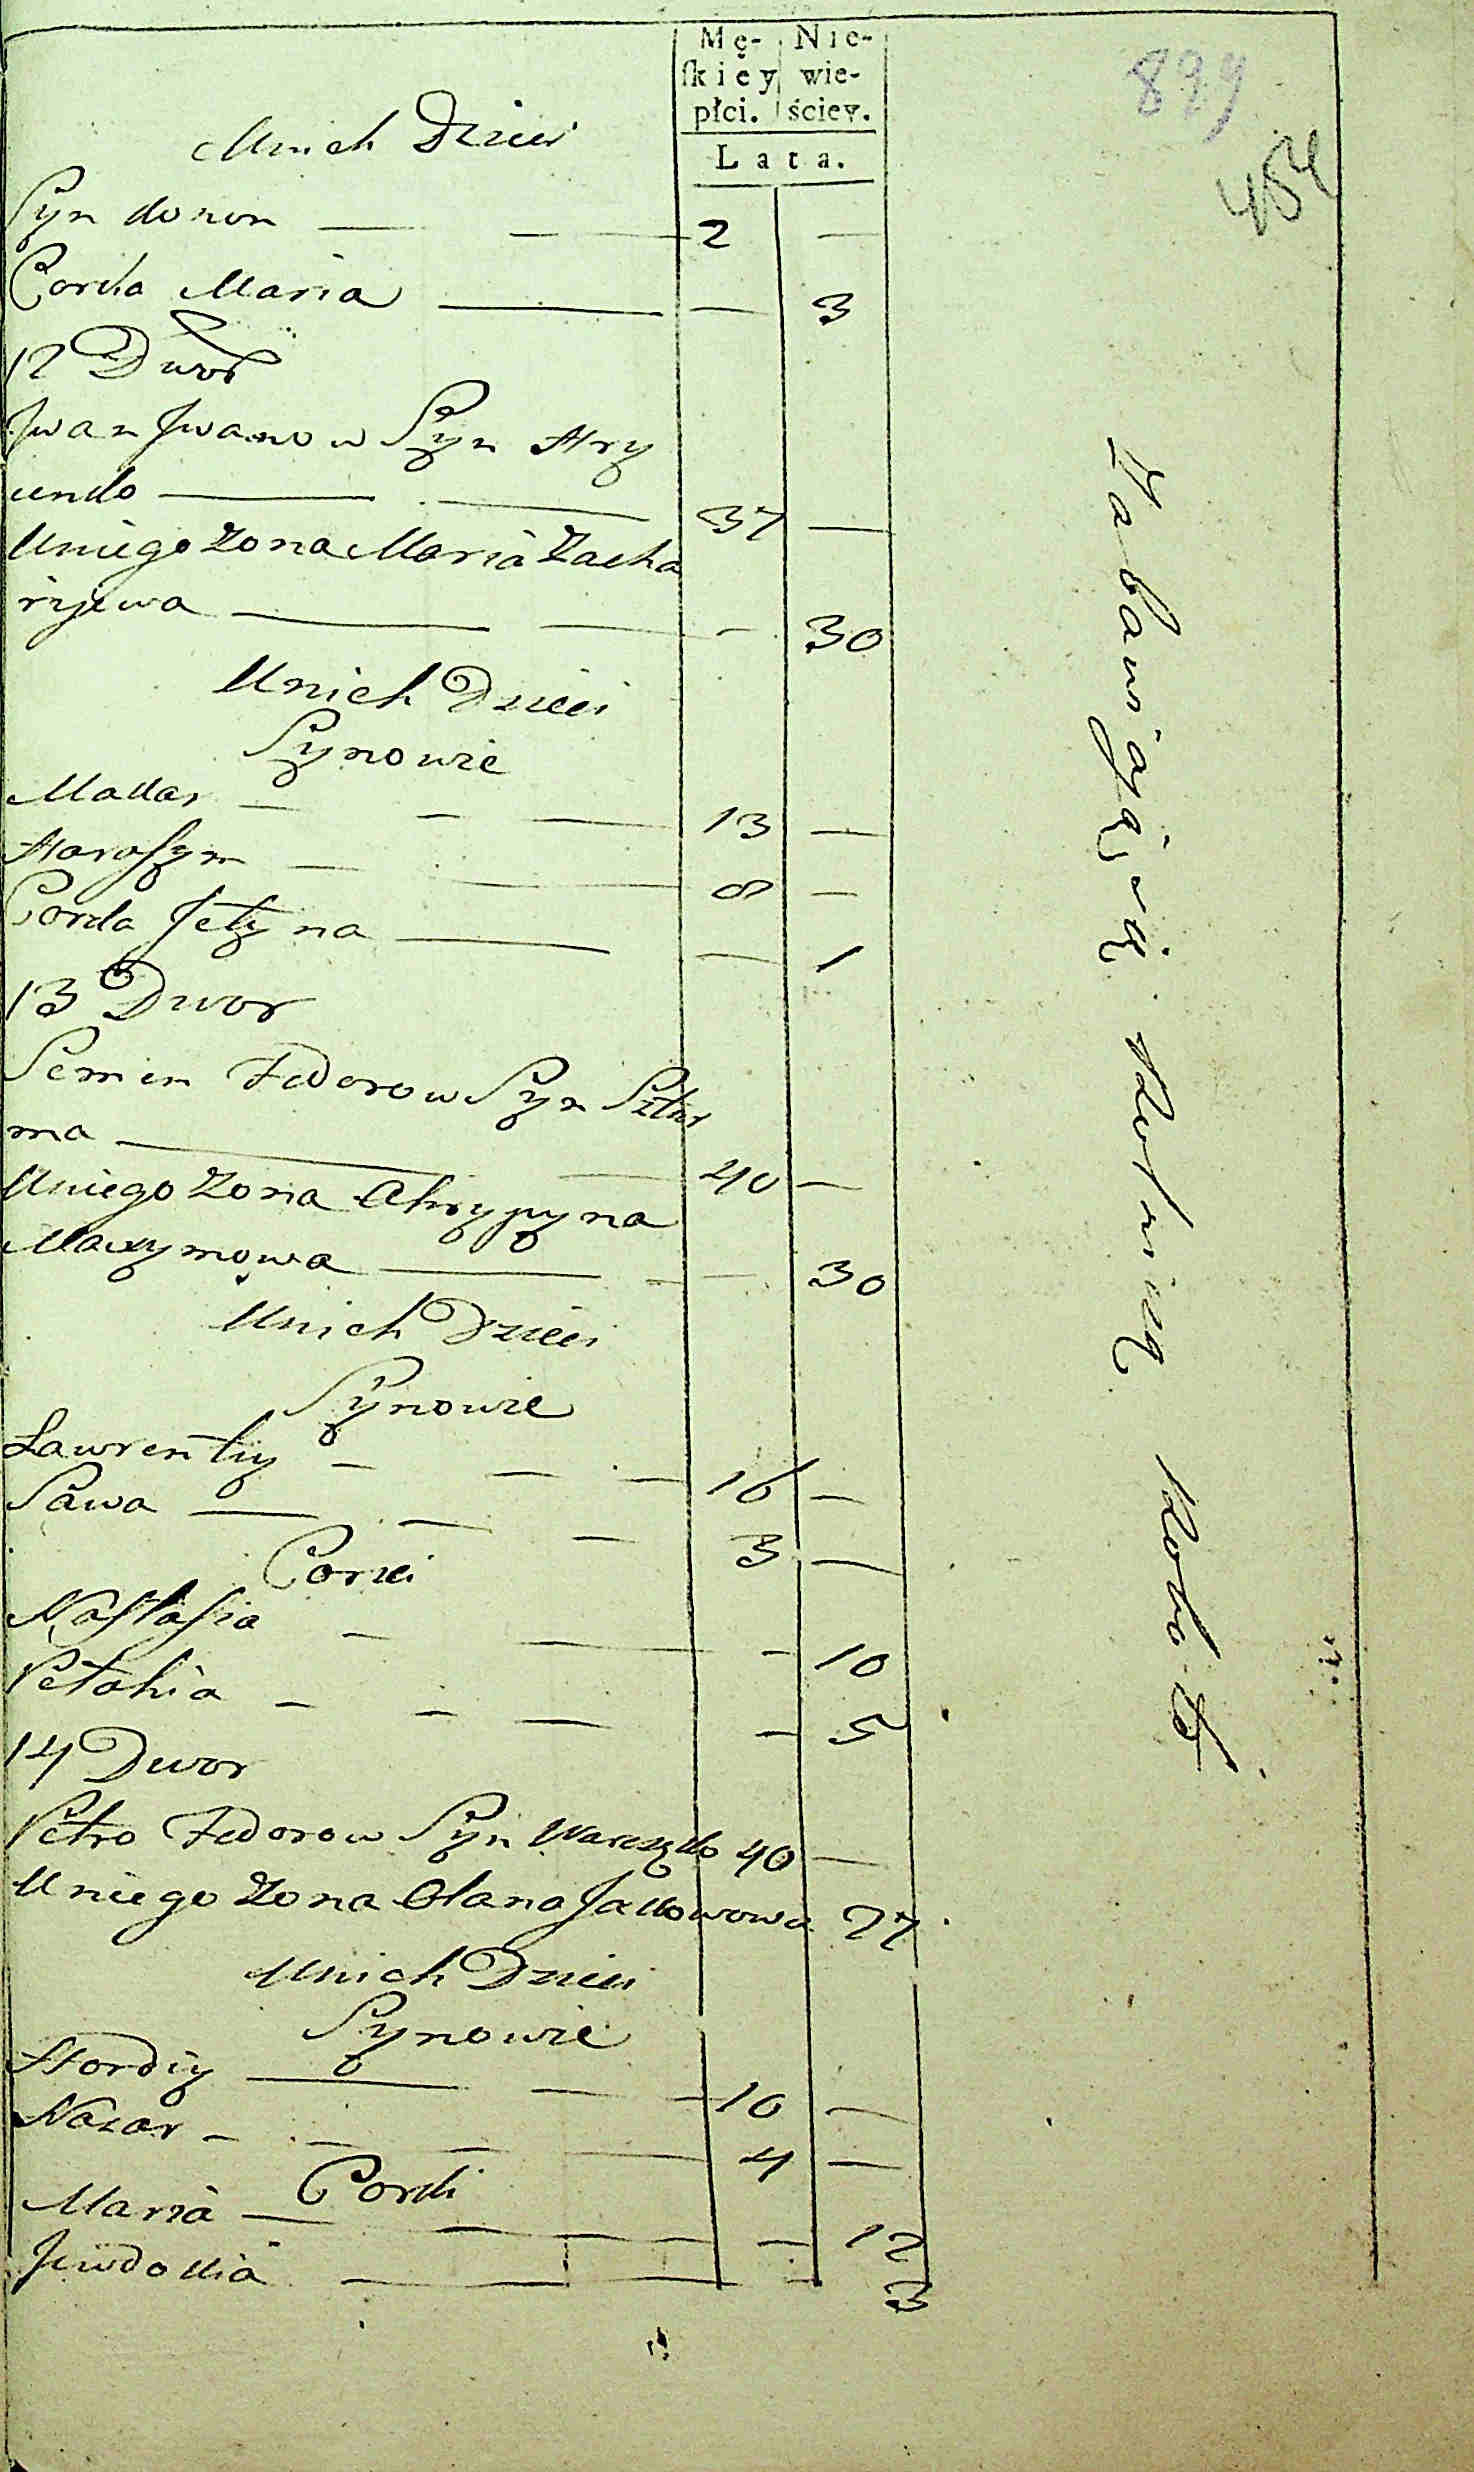 Mę- Nie-
skiey wie-
płci. ściey.
Lata.
899
454
Unich Dzieci
Syn 2 —
Corka Maria — 3
12 Dwor
Jwan Jwanow Syn Hry
cenko — 37 —
Uniego Zona Maria Zacha
ryjewa — 30
Unich Dzieci
Synowie
Makar — 13 —
Harasym — 8 —
Corka Jełyna — 1
13 Dwor
Semen Fedorow Syn
ma — 40 —
Uniego Zona Ahrypyna
Maxymowa — 30
Unich Dzieci
Synowie
Lawrentiy — 16 —
Sawa — 3 —
Corki
Nastasia — 10
Pełahia — 5
14 Dwor
Petro Fedorow Syn 40 —
Uniego Zona Olana Jakowowa 27
Unich Dzieci
Synowie
Hordiy — 10 —
Nazar — 4 —
Corki
Maria — 12
Jewdokia — 3
Zabawiaią się Rolniczą Robotą